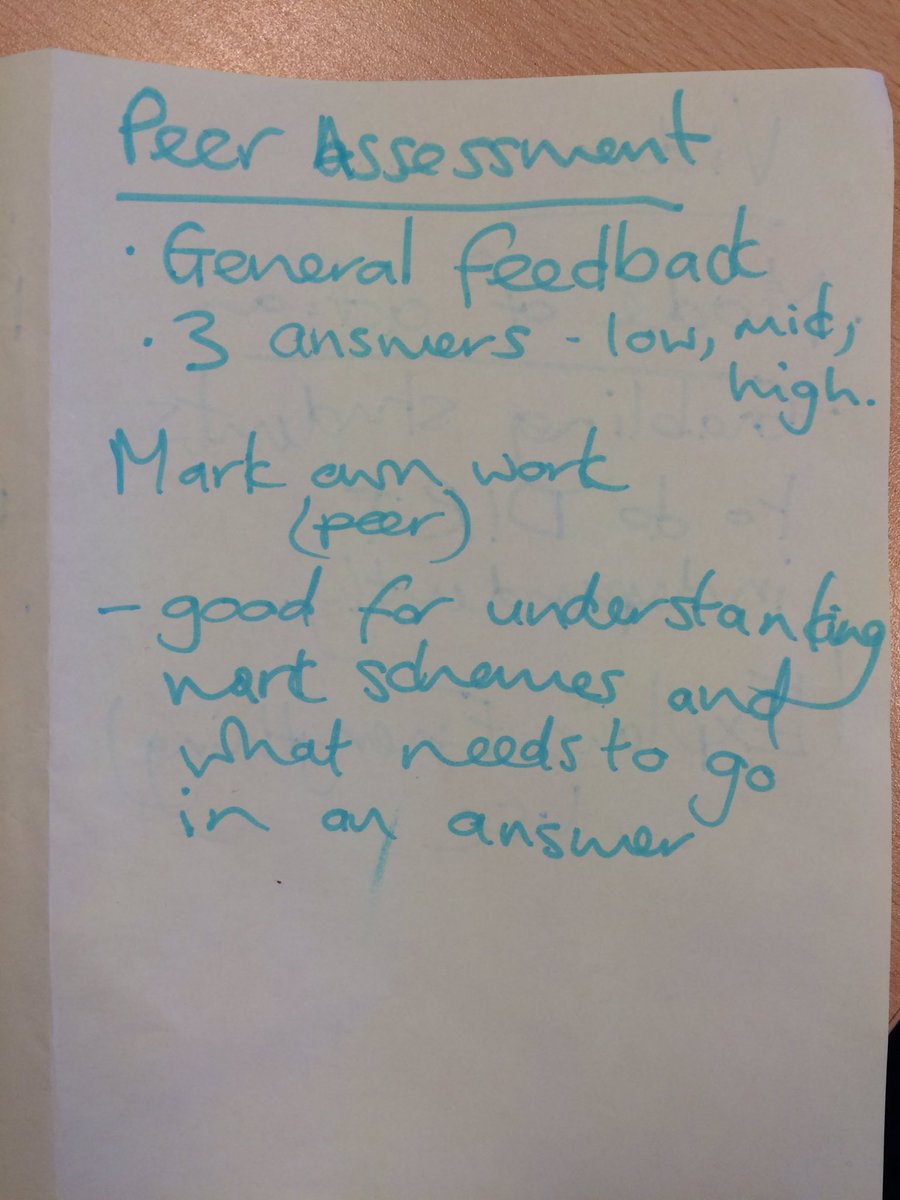 Peer Assessment
· General feedback
· 3 answers - low, mid,
high.
Mark own work
(peer)
- good for understanding
mark schemes and
what needs to go
in an answer